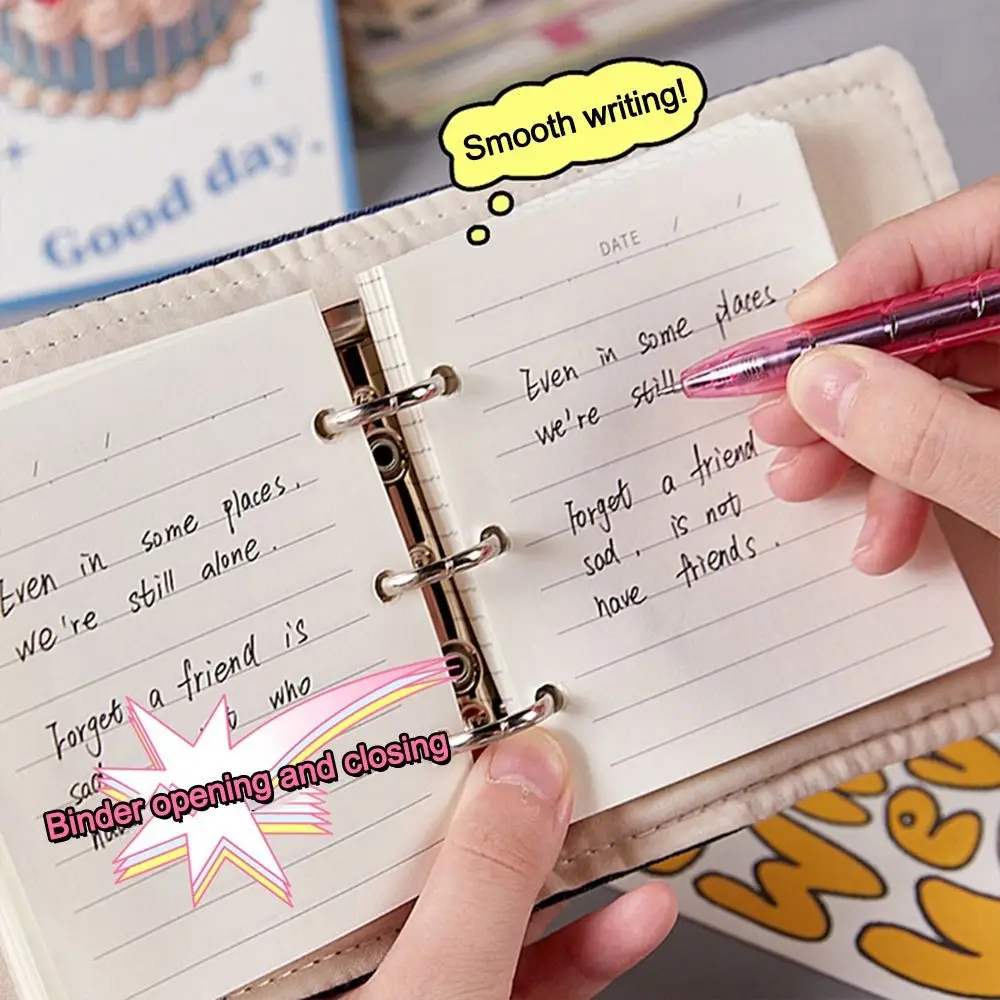 Good day.
Smooth writing!
DATE / /
Even in some places.
we're still
Forget a friend
sad. is not
have friends.
/ /
Even in some places.
we're still alone.
Forget a friend is
who
sad
Binder opening and closing